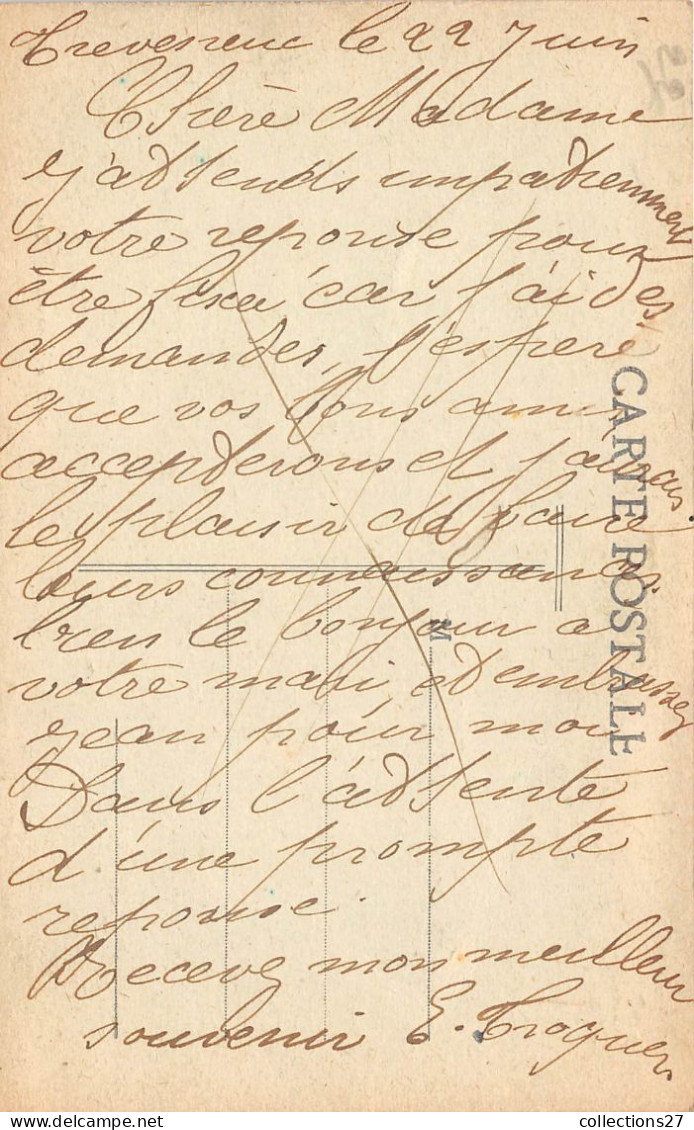 Treveneuc le 22 Juin
Chère Madame
j'adtends impadiemment
votre reponse pour
être fixé car j'ai des
demandes, j'espere
que vos bons amis
accepderons et j'aurais
le plaisir de faire
leurs connaissances
bien le bonjour a
votre mari, et dembrassez
jean pour moi
Dans l'adtente
d'une prompte
reponse.
Recevez mon meilleur
souvenir E. Troguer
CARTE POSTALE
M
collections27